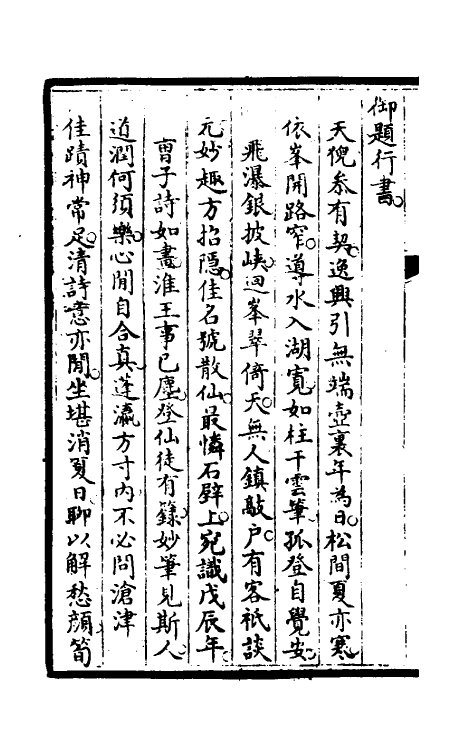 御題行書
天倪叅有契逸興引無端壺裏年為日松間夏亦寒
依峯開路窄導水入湖寛如柱干雲筆孤登自覺安
飛瀑銀披峽迴峯翠倚天無人鎮敲户有客祇談
元妙趣方招隱佳名號散仙最憐石壁上宛識戊辰年
曺子詩如畫淮王事已塵登仙徒有籙妙筆見斯人
道潤何須樂心閒自合真蓬瀛方寸内不必問滄津
佳蹟神常足清詩意亦閒坐堪消夏日聊以解愁顔筍